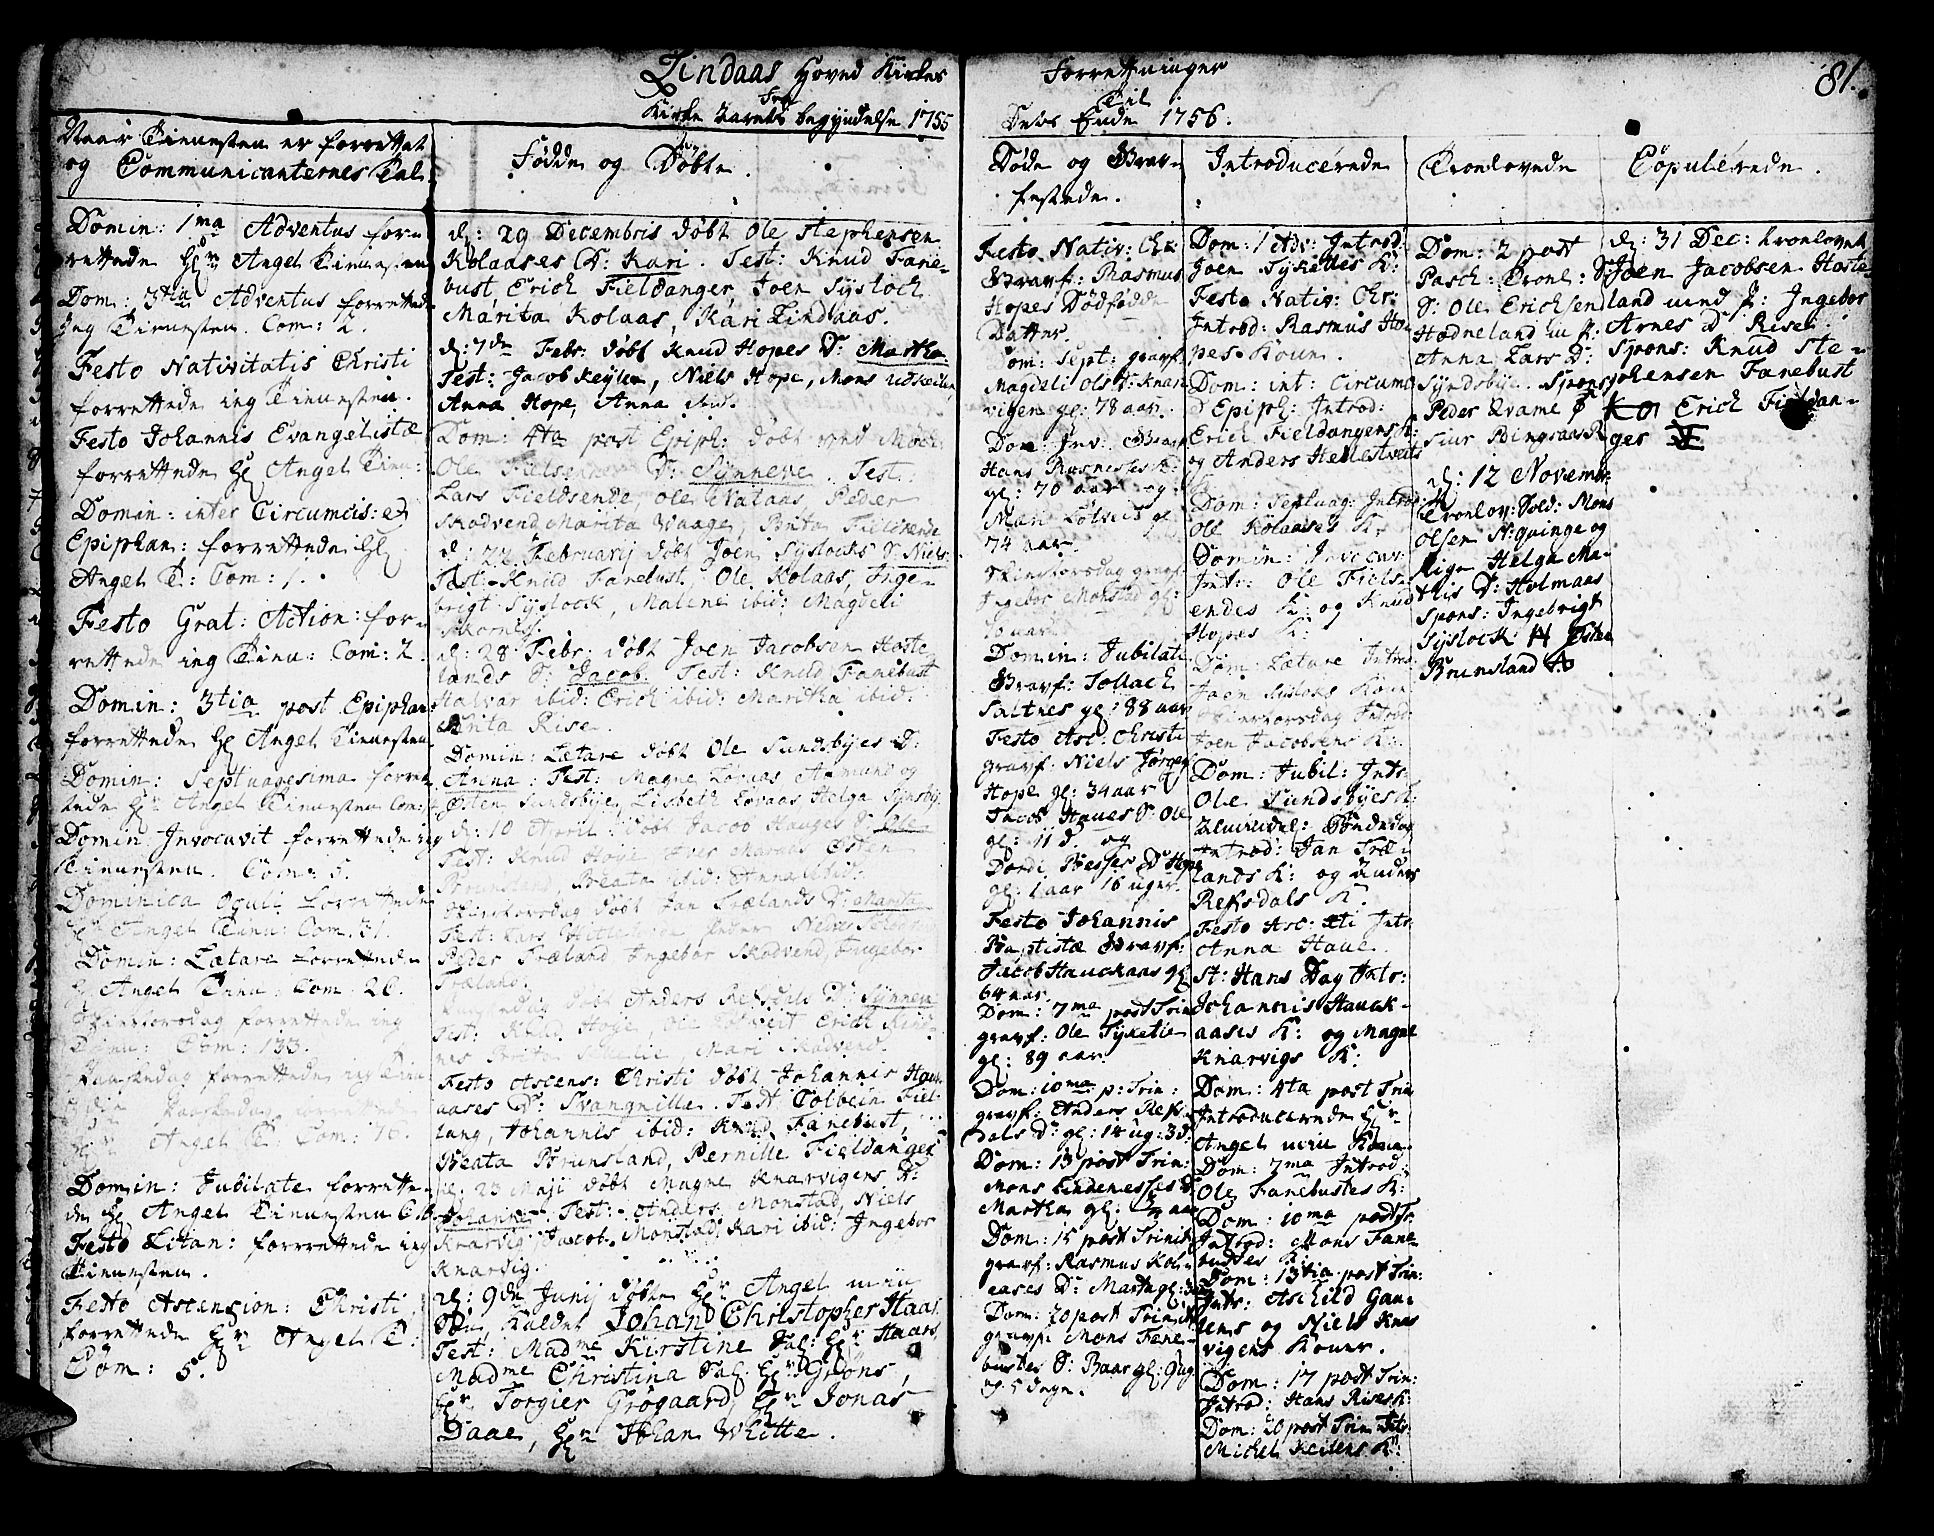 Lindaas Hoved Kirkes Forretninger
Kirke Aarets begyndelse 1755
fra
Til
Dets Ende 1756.
81.
Naar Tienesten er forrettet
og Communicanternes Tal
Domin: 1ma Adventus for-
rettede Hr Angel Tienesten
Dom: 3tia Adventus forrettede
Jeg Tienesten. Com: 2.
Festo Nativitatis Christi
forrettede jeg Tienesten.
Festo Johannis Evangelistæ
forrettede Hr Angel Tien:
Domin: inter Circumcis: et
Epiphan: forrettede Hr
Angel T: Com: 1.
Festo Grat: Action: for-
rettede jeg Tien: Com: 2.
Domin: 3tia post Epiphan:
forrettede Hr Angel Tienesten
Domin: Septuagesima forret-
tede Hr Angel Tienesten Com:
Domin Invocavit forrettede jeg
Tienesten. Com: 5.
Dominica Oculi forrettede
Hr Angel Tien: Com. 31.
Domin: Lætare forrettede
Hr Angel Tien: Com. 26.
Skiertorsdag forrettede jeg
Tien: Com: 133.
Paaskedag forrettede jeg Tien
Paaskedag forrettede
Hr Angel T. Com: 76.
Domin: Jubilate forrette-
de Hr Angel Tienesten C.
Festo Litan: forrettede jeg
Tienesten.
Festo Ascension: Christi
forrettede Hr Angel T:
Com: 5.
Fødde og Døbte.
d: 29 Decembris døbt Ole Stephensen
Kolaases D: Kari. Test: Knud Fane-
bust Erich Fieldanger, Joen Syslock
Marita Kolaas, Kari Lindaas.
d: 7de Febr: døbt Knud Hopes D: Martha
Test: Jacob Keylen, Niels Hope, Mons
Anna Hope, Anna ibid.
Dom: 4ta post Epiph: døbt
Ole Fielsende D: Synneve. Test:
Lars Fieldsende, Ole Nataas, Peder
Skodvend, Marita Waage, Brita Fielsende
d: 22 Februarij døbt Joen Syslocks S: Niels
Test: Knud Fanebust, Ole Kolaas, Inge-
brigt Syslock, Malene ibid: Magdeli
d: 28 Febr. døbt Joen Jacobsen Hoste-
lands S: Jacob. Test: Knud Fanebust
Halvar ibid: Erich ibid: Maritha ibid:
Brita Rise.
Domin: Lætare døbt Ole Sundsbyes D:
Anna: Test: Magne Lovaas Asmund og
Østen Sundsbye, Lisbeth Lovaas Helga Synsby.
d: 10 April: døbt Jacob Hauges S:
Test: Knud Hope Iver Østen
Brunsland Beata ibid: Anna ibid:
Skiertorsdag døbt Jan Trælands D: Marita
Test: Lars
Peder Træland Ingebor Skodvend, Ingebor
Træland.
døbt Anders Refsdals D: Synneve
Test: Knud Erich
Brita Mari Skodvend
Festo Ascens: Christi døbt Johannis Hauk-
aases D: Svangnille. Test Tolbein Fiel-
lang, Johannis ibid: Knud Fanebust,
Beata Brunsland, Pernille Fieldanger
d: 23 Maji døbt Magne Knarvigens D:
Johanna Test: Anders Monstad, Niels
Knarvig Jacob Monstad; Kari ibid: Ingebor
Knarvig.
d: 9de Junij døbte Hr Angel min
Søn kaldet Johan Christopher Haas.
Test: Madme Kirstine Sal: Hr Haars,
Madme Christina Sal: Hr Grøns,
Hr Torgier Grøgaard, Hr Jonas
Daae, Hr Johan Whitte.
Døde og Grav-
festede.
Festo Nativ: Chr
Gravf: Rasmus
Hopes Dødfødde
Datter.
Dom: Sept: gravf.
Magdeli Ols D: Knar-
vigen gl: 78 aar.
Dom: Inv: Gravf
Hans Rusnesses K:
gl: 70 aar og
Mari Lotveit gl
74 aar.
Skiertorsdag gravf
Ingebor Monstad gl:
aar.
Domin: Jubilate
Gravf: Tollach
Saltnes gl: 88 aar
Festo Asc: Christi
gravf: Niels Jørgen
Hope gl: 34 aar
Jacob Haues S: Ole
gl: 11 d. og
Dordi Besses D: Hope
gl: 1 aar 16 uger.
Festo Johannis
Baptistæ Gravf:
Jacob Hauckaas gl
64 aar.
Dom: 7ma post Trin
gravf: Ole Tyketie
gl: 89 aar.
Dom: 10ma p: Trin:
gravf: Anders Refs-
dals D: gl: 14 ug: 3 d.
Dom: 13 post Trin:
Mons Lindenesses D
Martha gl: aar
Dom: 15 post Trinit
gravf: Rasmus Kol-
aases D: Marta gl:
Dom: 20 post Trinit
gravf: Mons Fane-
bustes S: Baar gl: 9 ug
og 5 dage.
Introducerede
Dom: 1 Adv: Introd:
Joen Tyketies K:
Festo Nativ: Chr:
Introd: Rasmus Ho-
pes Koune.
Dom: int: Circumc
& Epiph: Introd:
Erich Fieldangers K:
og Anders Hellestveits
K:
Dom: Septuag: Introd:
Ole Kolaases K:
Domin: Invocav:
Intr: Ole Fiels-
endes K: og Knud
Hopes K:
Dom: Lætare Introd
Joen Syslocks Koun
Skiertorsdag Introd:
Joen Jacobsens K:
Dom: Jubil: Intr:
Ole Sundsbyes K:
Almindel: Bededag
Introd: Jan Træ-
lands K: og Anders
Refsdals K:
Festo Asc: Xti Intr
Anna Haue.
St: Hans Dag Intr:
Johannis Hauck-
aases K: og Magne
Knarvigs K:
Dom: 4ta post Trin
Introducerede Hr
Angel min Koun-
Dom: 7ma Introd:
Ole Fanebustes K:
Dom: 10ma post Tr
Introd: Mons Fane-
bustes K:
Dom: 13tia post Trin:
Intr: Aschild Gau-
lens og Niels Knar-
vigens Koner.
Dom: 17 post Trin:
Introd: Hans Rises K:
Dom: 20 post Trin Intr
Michel Keilens K:
Troelovede
Dom: 2 post
Pasch: Troel:
S: Ole Erichsen
Hodneland m P:
Anna Lars D:
Syndsbye. Spons:
Peder Qvame &
Siur Bingsaas
d: 12 November
Troelov: Sold: Mons
Olsen N:qvinge og
Pige Helga Ma-
this D: Holmaas
Spons: Ingebrigt
Syslock Østen
Brunsland
Copulerede.
d: 31 Dec: troelovet
S: Joen Jacobsen Hoste-
land med P: Ingebor
Arnes D Rise
Spons: Knud Ste-
phensen Fanebust
Erich Fieldan-
ger